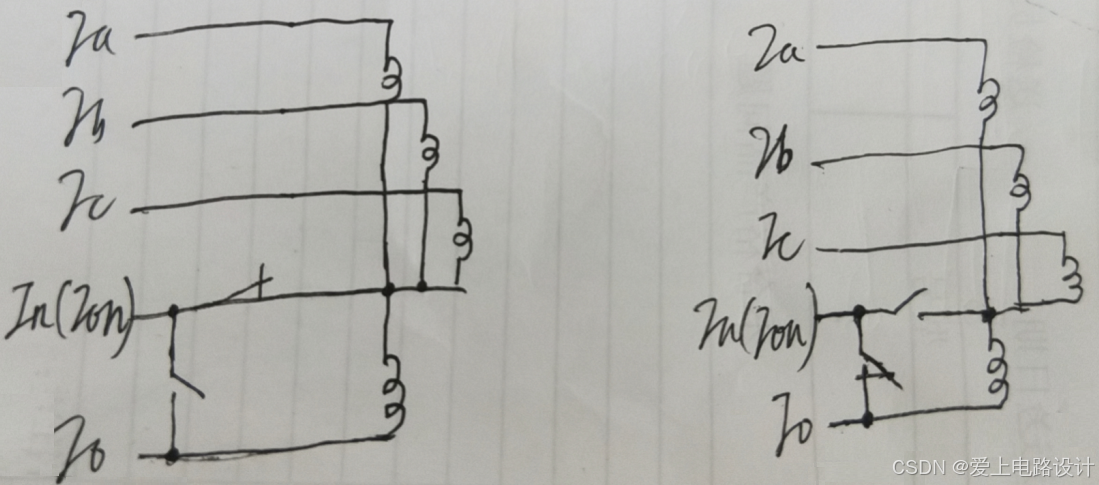 Ia
Ib
Ic
In(Ion)
Io
Ia
Ib
Ic
In(Ion)
Io
CSDN @爱上电路设计